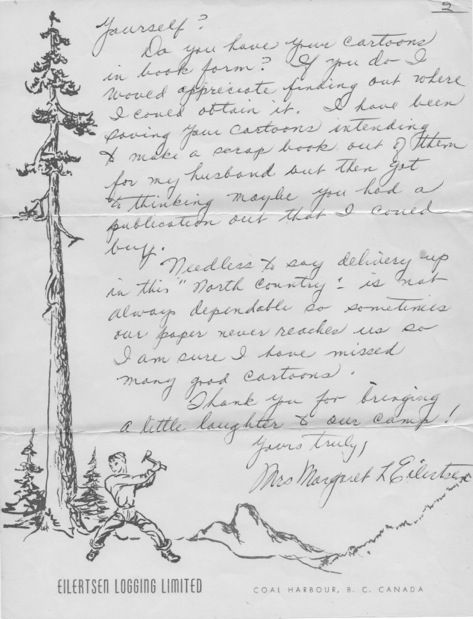 2
Yourself?
Do you have your cartoons
in book form? If you do I
would appreciate finding out where
I could obtain it. I have been
saving your cartoons intending
to make a scrap book out of them
for my husband but then got
to thinking maybe you had a
publication out that I could
buy.
Needless to say delivery up
in this "North Country" - is not
always dependable so sometimes
our paper never reaches us so
I am sure I have missed
many good cartoons.
Thank you for bringing
a little laughter to our camp!
Yours truly,
Mrs Margaret L Eilertsen
EILERTSEN LOGGING LIMITED
COAL HARBOUR, B. C. CANADA